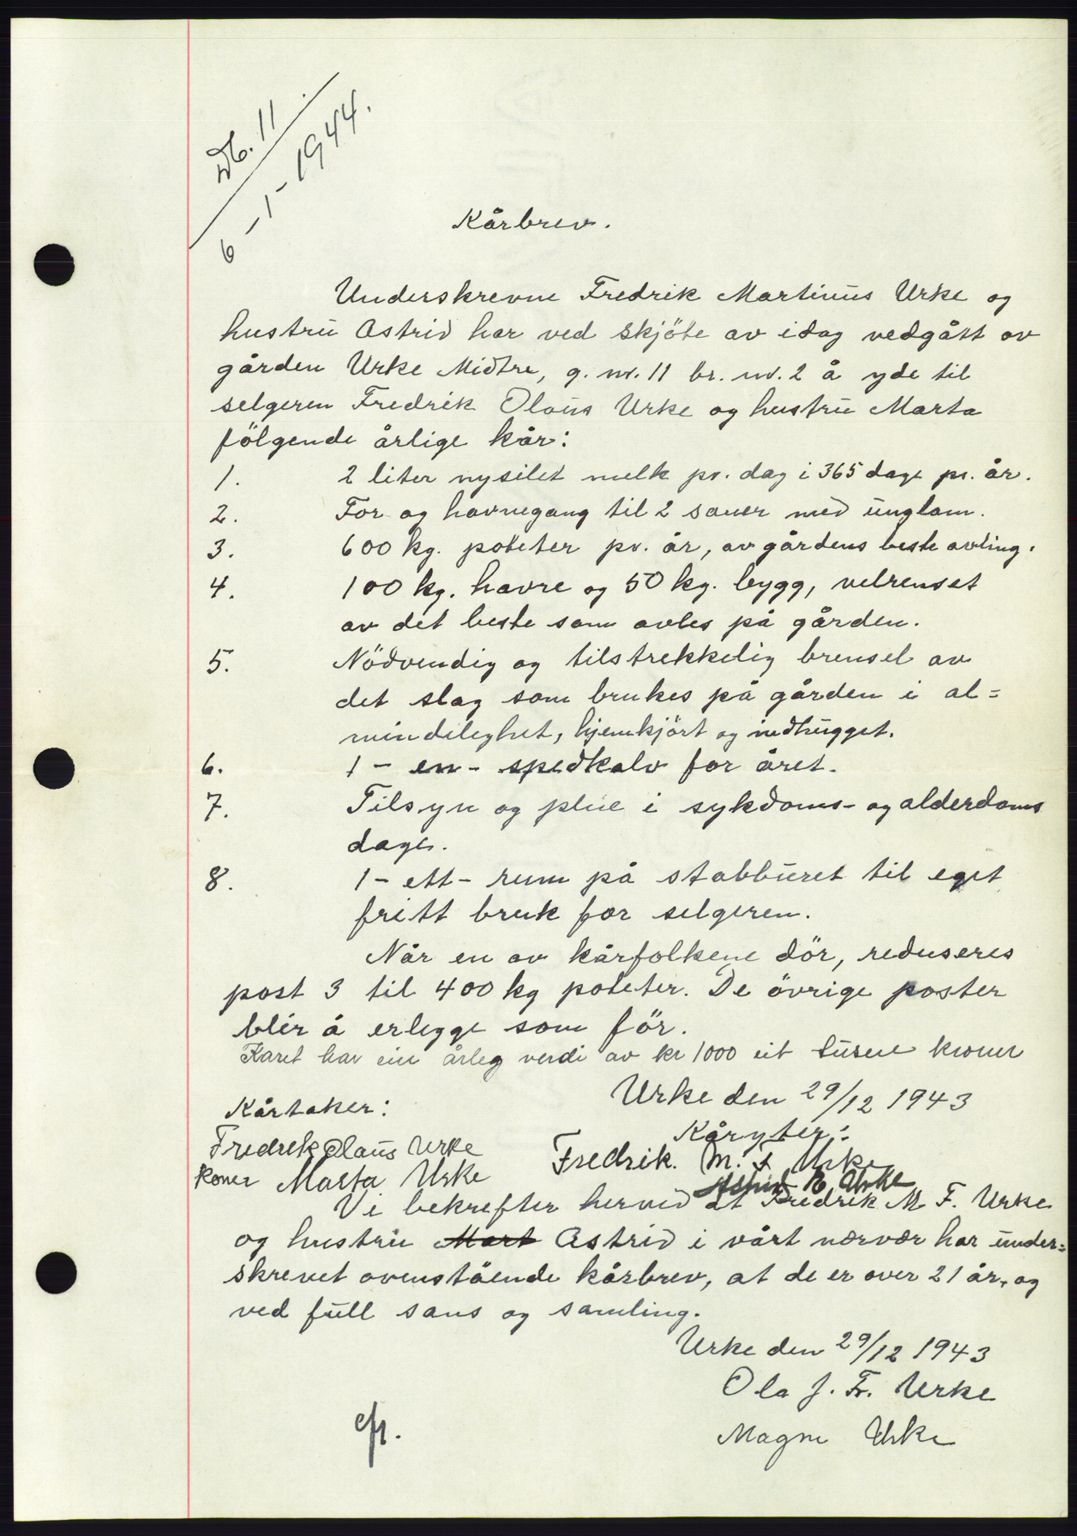 Db. 11
6 - 1 - 1944.
Kårbrev.
Underskrevne Fredrik Martinus Urke og
hustru Astrid har ved skjöte av idag vedgått av
gården Urke Midtre, g. nr. 11 br. nr. 2 å yde til
selgeren Fredrik Olaus Urke og hustru Marta
fölgende årlige kår:
1. 2 liter nysilet melk pr. dag i 365 dage pr. år.
2. For og havnegang til 2 sauer med unglam.
3. 600 kg. poteter pr. år, av gårdens beste avling.
4. 100 kg. havre og 50 kg. bygg, velrenset
av det beste som avles på gården.
5. Nödvendig og tilstrekkelig brensel av
det slag som brukes på gården i al=
mindelighet, hjemkjört og nedhugget.
6. 1 - en - spedkalv for året.
7. Tilsyn og pleie i sykdoms- og alderdoms
dage.
8. 1 - ett - rum på stabburet til eget
fritt bruk for selgeren.
Når en av kårfolkene dör, reduseres
post 3 til 400 kg poteter. De övrige poster
blir å erlegge som för.
Karet har ein årleg verdi av kr 1000 eit tusen kroner
Urke den 29/12 1943
Kårtaker: Kåryter:
Fredrek Olaus Urke Fredrik. M. F Urke
Koner Marta Urke Astrid R Urke
Vi bekrefter herved at Fredrik M F. Urke
og hustru Mart Astrid i vårt nærvær har under=
skrevet ovenstående kårbrev, at de er over 21 år, og
ved full sans og samling.
Urke den 29/12 1943
Ola J. Fr. Urke
Magne Urke